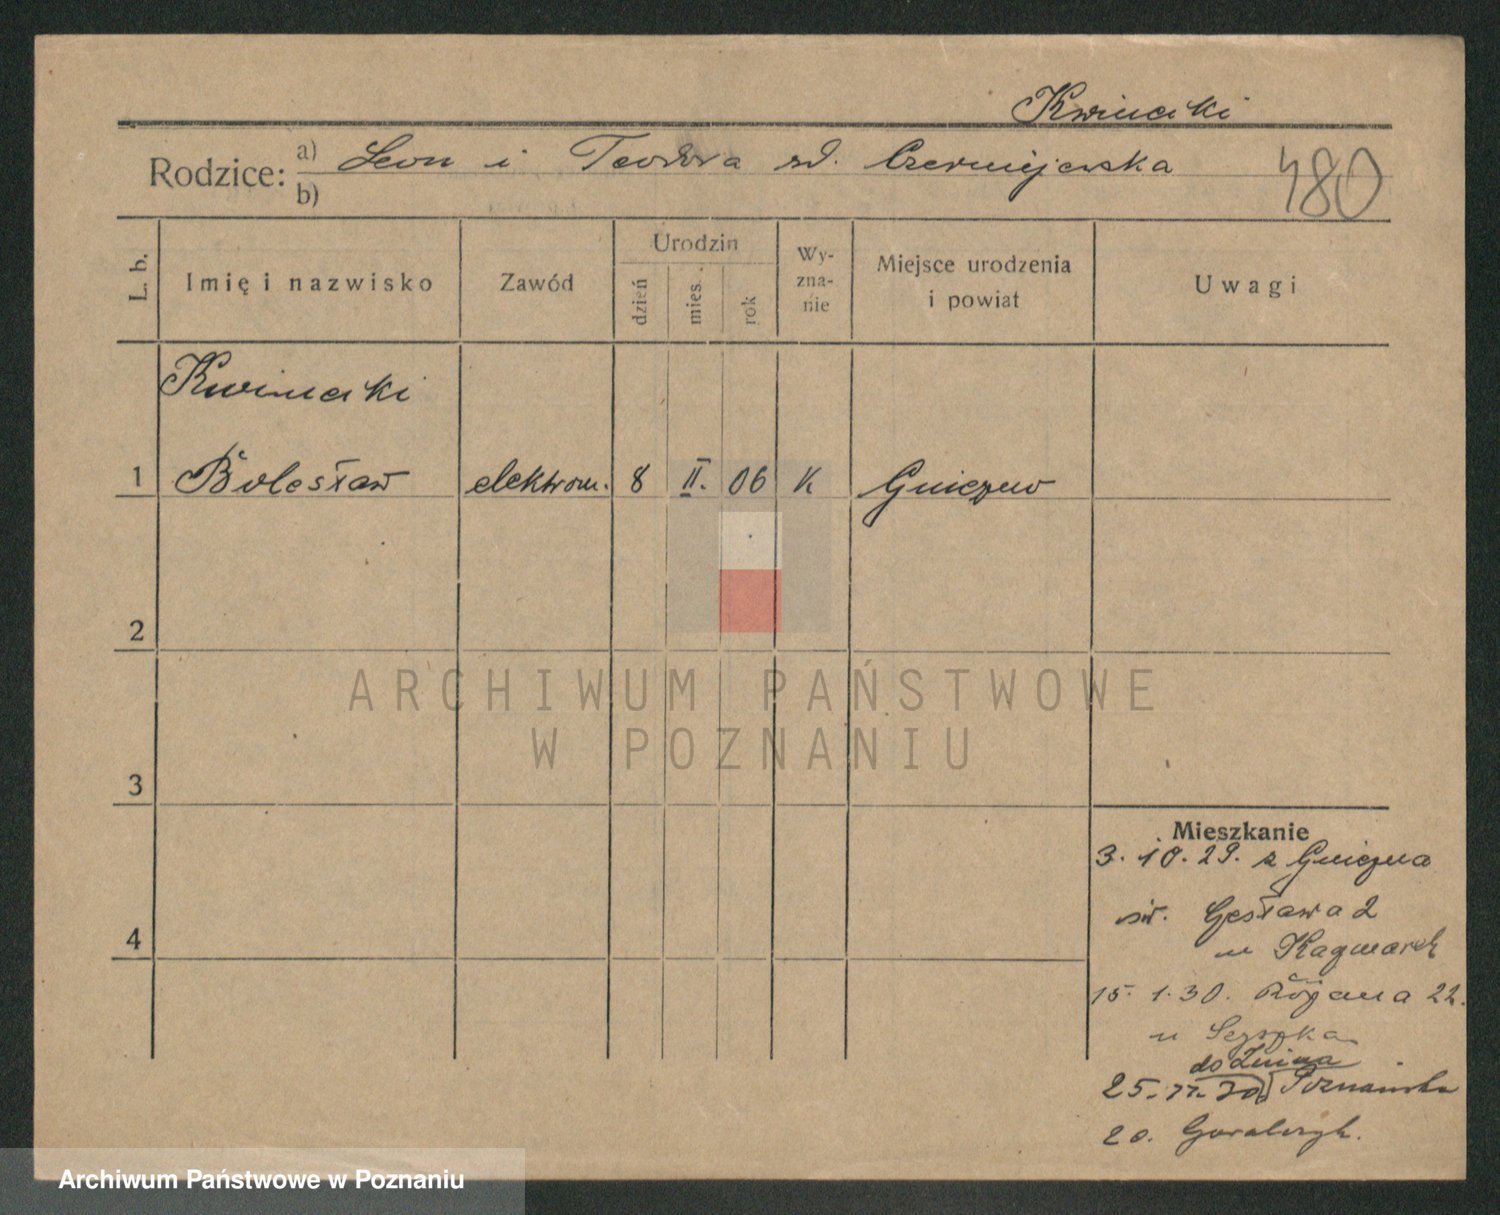 Kwinecki
Rodzice: a) Leon i Teodora zd. Czerniejewska
b)
480
L. b.
Imię i nazwisko
Zawód
Urodzin
dzień
mies.
rok
Wy-
zna-
nie
Miejsce urodzenia
i powiat
Uwagi
Kwinecki
1 Bolesław elektrom. 8 II. 06 K Gniezno
2
ARCHIWUM PAŃSTWOWE
W POZNANIU
3
Mieszkanie
3. 10. 29. z Gniezna
św. Czesława 2
4
u Kaczmarek
15. 1. 30. Różana 22.
u
do Żnina
25. 11. 30 Poznańska
20.
Archiwum Państwowe w Poznaniu